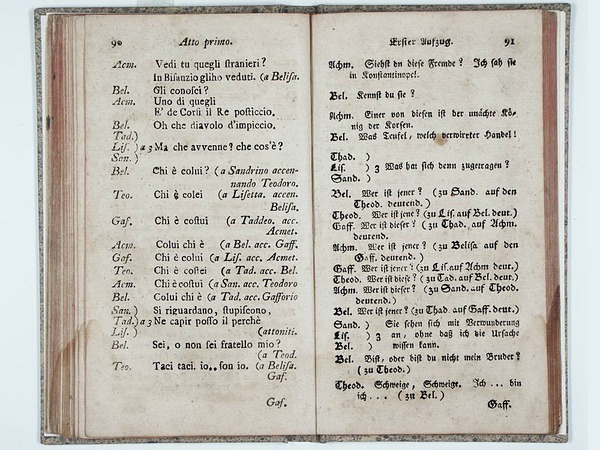 90 Atto primo.
Acm. Vedi tu quegli stranieri?
In Bisanzio gliho veduti. (a Belisa.
Bel. Gli conosci?
Acm. Uno di quegli
E' de Corsi il Re posticcio.
Bel. Oh che diavolo d'impiccio.
Tad.)
Lis. ) a 3 Ma che avvenne? che cos'è?
San. )
Bel. Chi è colui? (a Sandrino accen-
nando Teodoro.
Teo. Chi è colei (a Lisetta. accen.
Belisa.
Gaf. Chi è costui (a Taddeo. acc.
Acmet.
Acm. Colui chi è (a Bel. acc. Gaff.
Gaf. Chi è colui (a Lis. acc. Acmet.
Teo. Chi è costei (a Tad. acc. Bel.
Acm. Chi è costui (a San. acc. Teodoro
Bel. Colui chi è (a Tad. acc. Gafforio
San. ) Si riguardano, stupiscono,
Tad.) a 3 Ne capir posso il perchè
Lis. ) (attoniti.
Bel. Sei, o non sei fratello mio?
(a Teod.
Teo. Taci taci. io.. son io. (a Belisa.
Gaf.
Gaf.
Erster Aufzug. 91
Achm. Siehst du diese Fremde? Ich sah sie
in Konstantinopel.
Bel. Kennst du sie?
Achm. Einer von diesen ist der unächte Kö-
nig der Korsen.
Bel. Was Teufel, welch verwirrter Handel!
Thad. )
Lis. ) 3 Was hat sich denn zugetragen?
Sand. )
Bel. Wer ist jener? (zu Sand. auf den
Theod. deutend.)
Theod. Wer ist jene? (zu Lis. auf Bel. deut.)
Gaff. Wer ist dieser? (zu Thad. auf Achm.
deutend.
Achm. Wer ist jener? (zu Belisa auf den
Gaff. deutend.)
Gaff. Wer ist jener? (zu Lis. auf Achm deut.)
Theod. Wer ist diese? (zu Tad. auf Bel. deut.)
Achm. Wer ist dieser? (zu Sand. auf Theod.
deutend.)
Bel. Wer ist jener? (zu Thad. auf Gaff. deut.)
Sand. ) Sie sehen sich mit Verwunderung
Lis. ) 3 an, ohne daß ich die Ursache
Bel. ) wissen kann.
Bel. Bist, oder bist du nicht mein Bruder?
(zu Theod.)
Theod. Schweige, Schweige. Ich ... bin
ich ... (zu Bel.)
Gaff.